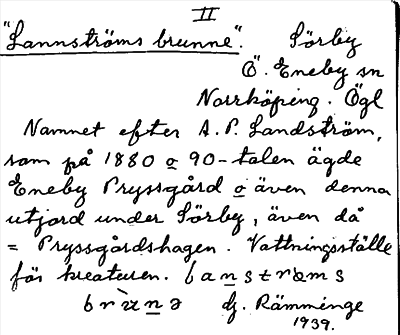 II
"Lannströms brunne". Sörby
Ö. Eneby sn
Norrköping. Ögl
Namnet efter A. P. Landström,
som på 1880 o 90-talen ägde
Eneby Pryssgård o även denna
utjord under Sörby, även då
= Pryssgårdshagen. Vattningsställe
för kreaturen. lanstrøms
brùnə dj. Rämminge
1939.